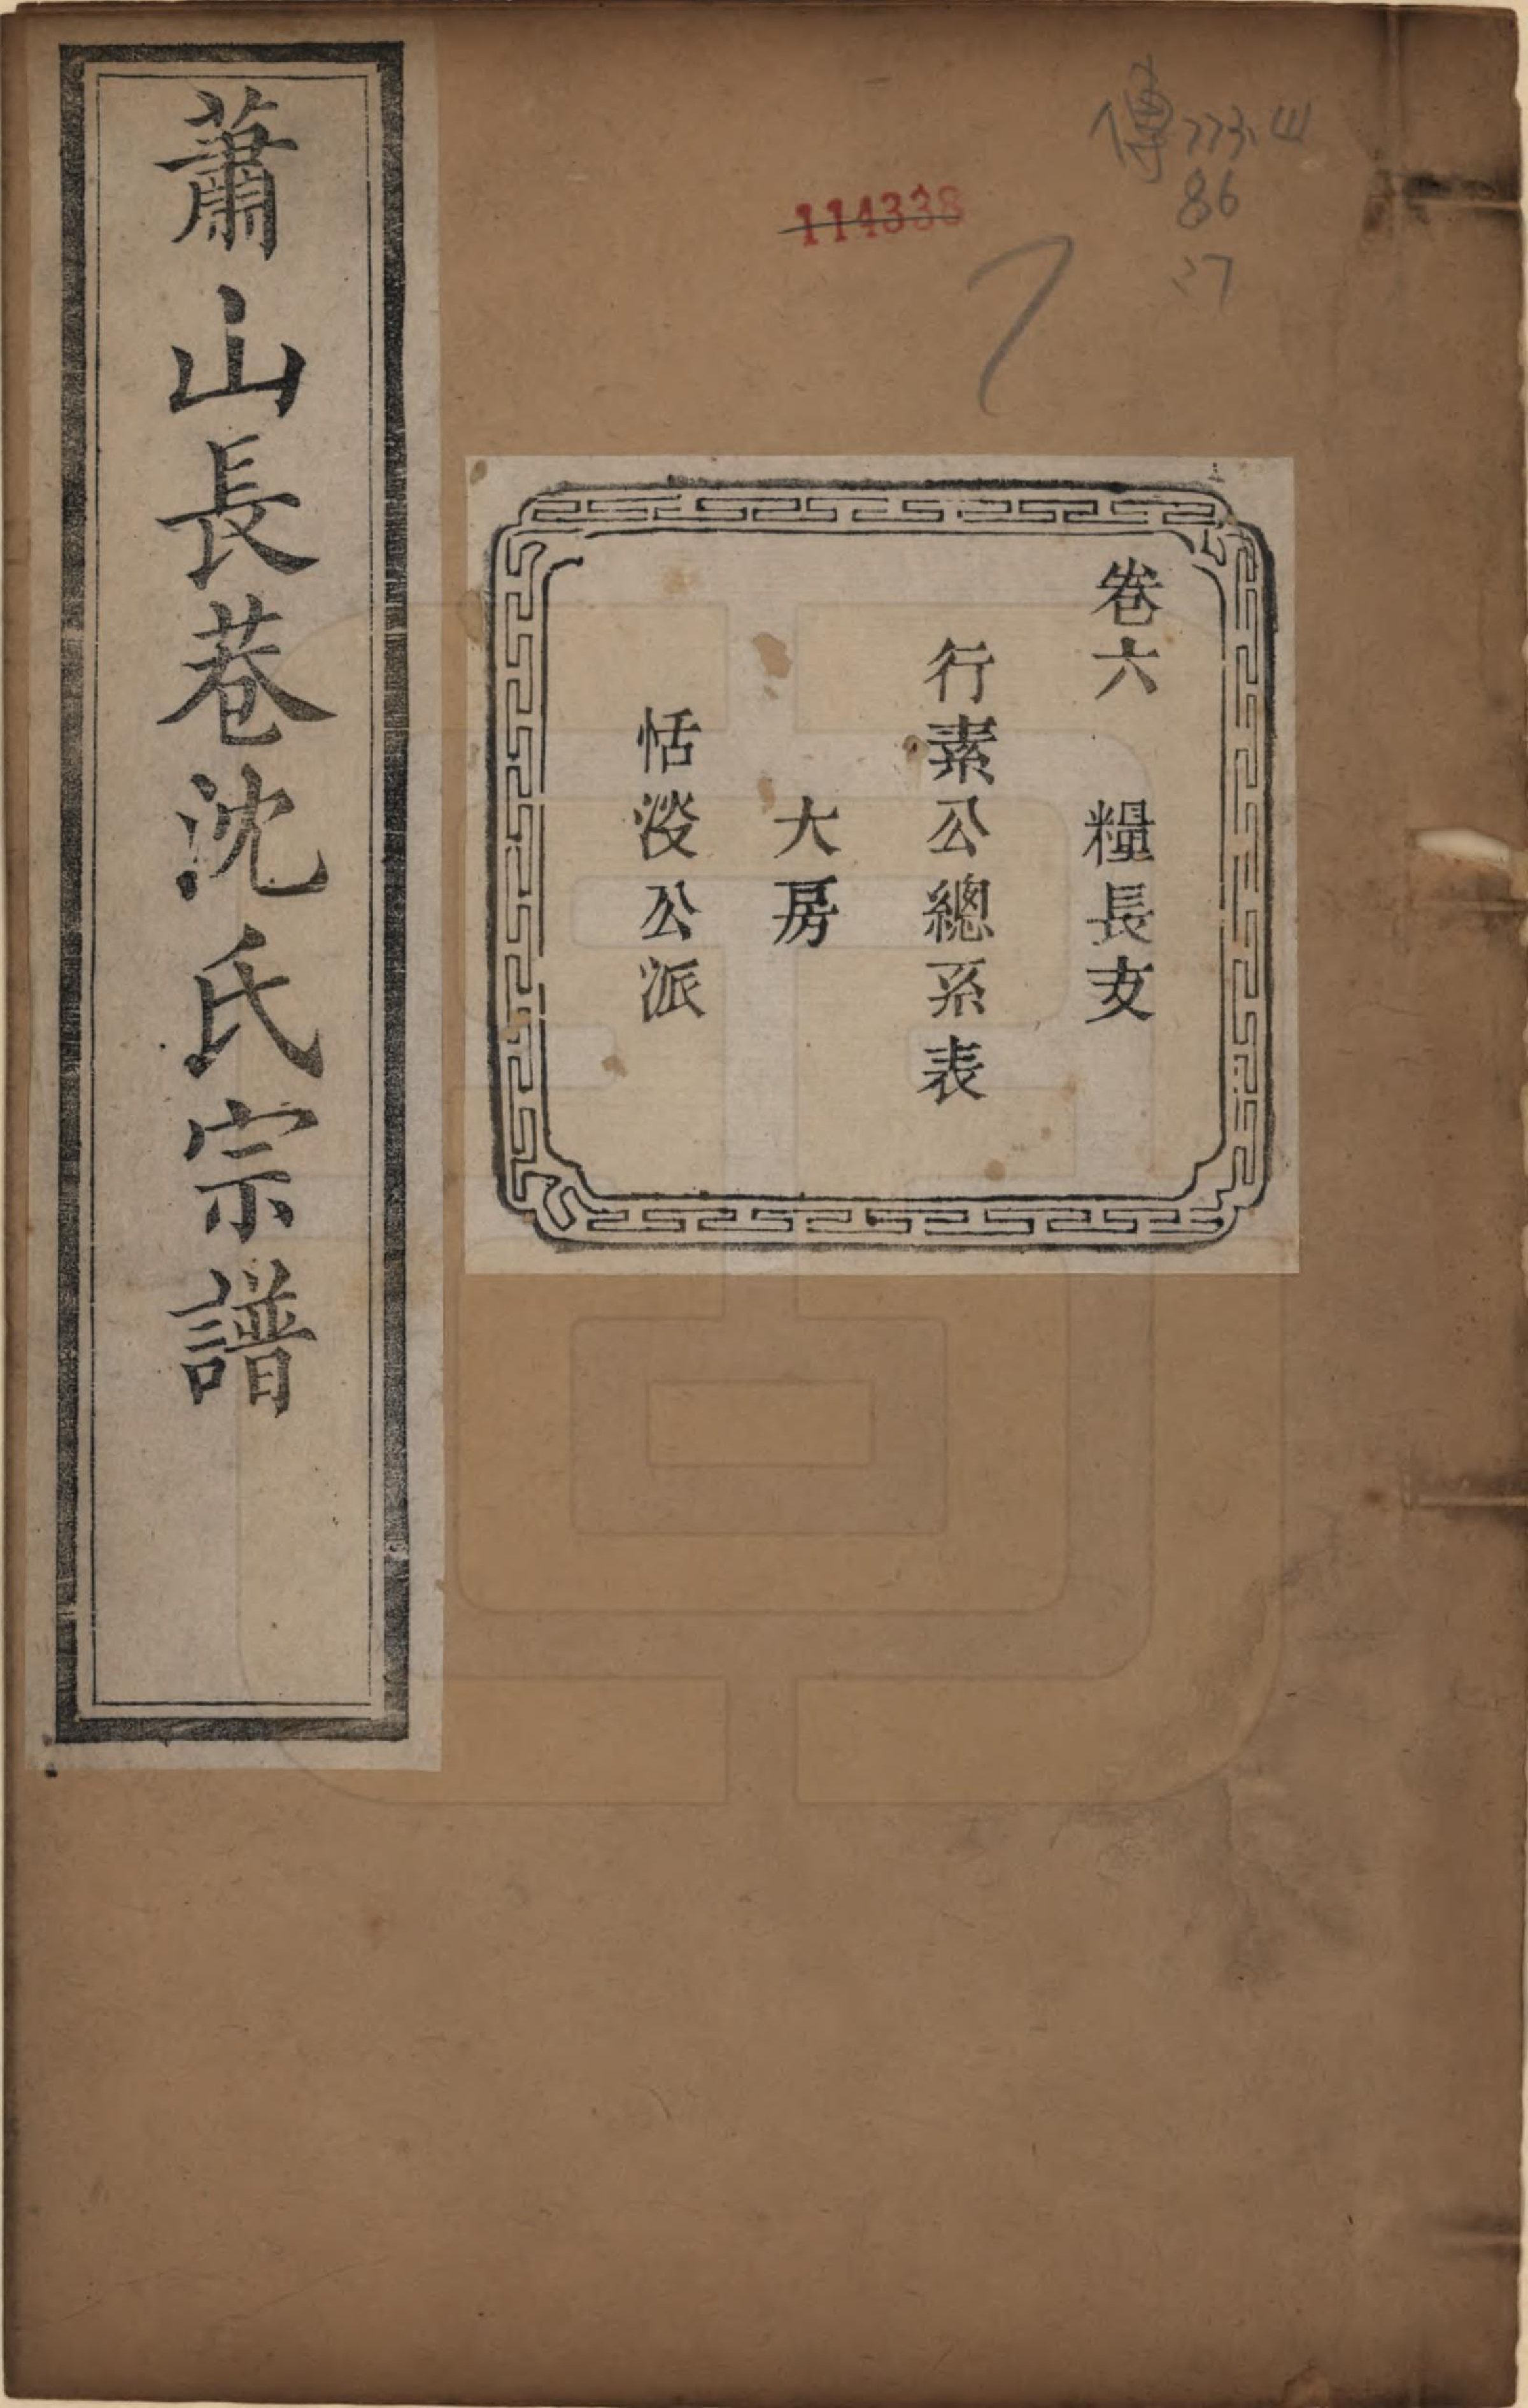 蕭山長巷沈氏宗譜
卷六 糧長支
行素公總系表
大房
恬淡公派
114338
傳 773.4
86
27
7